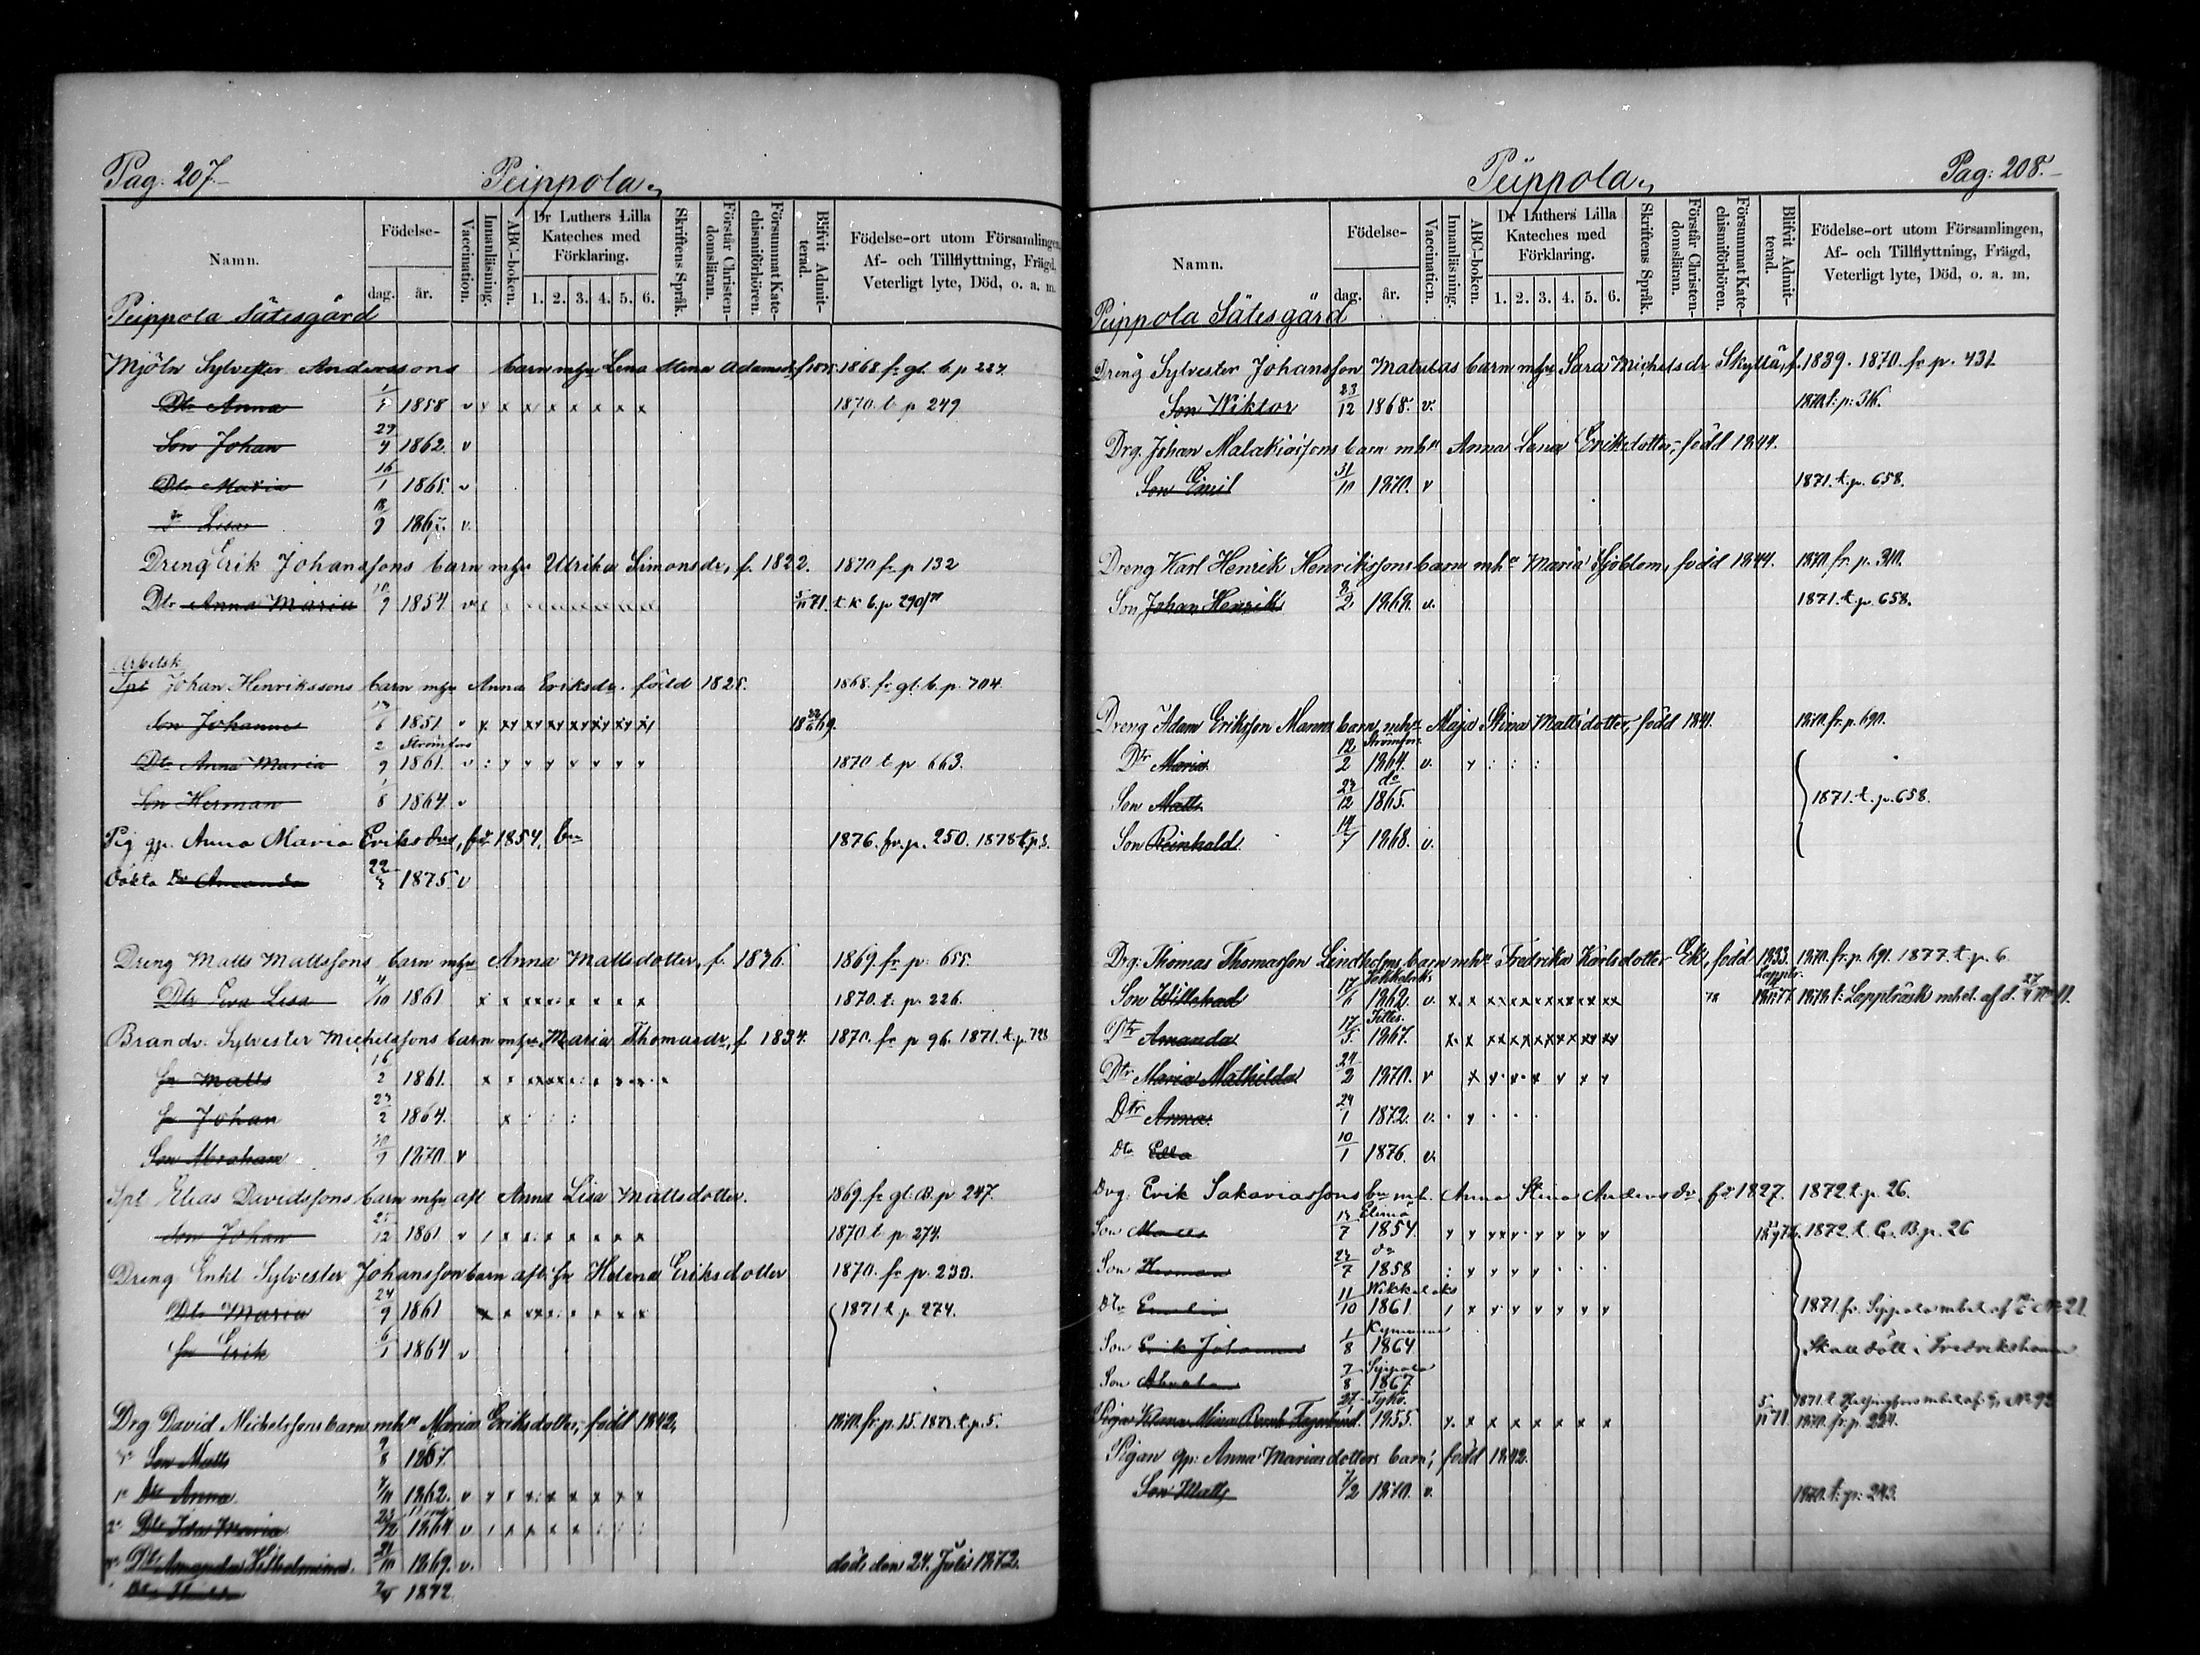 Pag. 207.
Peippola
Namn.
Födelse-
dag.
år.
Vaccination.
Innanläsning.
ABC-boken.
Dr Luthers Lilla Kateches med Förklaring.
1. 2. 3. 4. 5. 6.
Skriftens Språk.
Förstår Christendomsläran.
Försummat Katechismiförhören.
Blifvit Admitterad.
Födelse-ort utom Församlingen,
Af- och Tillflyttning, Frägd,
Veterligt lyte, Död, o. a. m.
Peippola Sätesgård
Mjöln Sylvester Anderssons barn mhu Lena Stina Adamsdr 1868 fr gl. b. p 227
Dtr Anna 1/1 1858 v x x x x x x x x 1870 t. p 249
Son Johan 29/4 1862 v
Dtr Maria 16/1 1865 v
Lisa 18/9 1867 v
Dreng Erik Johanssons barn mhu Ulrika Simonsdr, f. 1822. 1870 fr p 132
Dtr Anna Maria 10/9 1854 v 5/11 71. t. k b. p 290
Arbetsk
Spt Johan Henrikssons barn mhu Anna Eriksdr. född 1825. 1868. fr gl. b. p. 704
Son Johannes 13/6 1851 v 1869.
Strömfors
Dtr Anna Maria 2/9 1861 v 1870 t. p 663.
Son Herman 1/8 1864 v
Pig gp. Anna Maria Eriksdrs, fd 1854, bn 1876. fr. p. 250. 1878 t. p.
oäkta Dr Amanda 22/3 1875 v
Dreng Matts Mattssons barn mhu Anna Mattsdotter, f. 1836 1869. fr p. 655.
Dtr Eva Lisa 4/10 1861 1870. t. p. 226.
Brandv. Sylvester Michelssons barn mhu Maria Thomasdr, f 1834. 1870. fr p 96. 1871. t. p. 728
Sn Matts 16/2 1861.
Sn Johan 23/2 1864.
Son Abraham 10/9 1870 v
Spt Elias Davidssons barn mhu afl Anna Lisa Mattsdotter. 1869. fr gl. B. p 247.
Son Johan 25/12 1861 v 1870 t. p. 274.
Dreng Enkl Sylvester Johansson barn aflhu Helena Eriksdotter 1870. fr p. 230.
Dtr Maria 24/9 1861 1871 t. p. 274.
Sn Erik 6/1 1864 v
Drg David Michelssons barn mhu Maria Eriksdotter, född 1842, 1870 fr. p. 15. 1873. t. p. 5.
Son Matts 9/8 1867.
1o Dtr Anna 7/11 1862. v
2o Dtr Ida Maria 1864 v
Dtr Amanda Wilhelmina. 1869. v. död den 24. Juli 1872.
1872
Peippola
Pag: 208.
Namn.
Födelse-
dag.
år.
Vaccination.
Innanläsning.
ABC-boken.
Dr Luthers Lilla Kateches med Förklaring.
1. 2. 3. 4. 5. 6.
Skriftens Språk.
Förstår Christendomsläran.
Försummat Katechismiförhören.
Blifvit Admitterad.
Födelse-ort utom Församlingen,
Af- och Tillflyttning, Frägd,
Veterligt lyte, Död, o. a. m.
Peippola Sätesgård
Dreng Sylvester Johansson Matulas barn mhu Sara Michelsdr Skyttä, f. 1839. 1870. fr p. 431
Son Wiktor 23/12 1868. v. 1870. t: p: 316.
Drg. Johan Malakiassons barn mhu Anna Lena Eriksdotter, född 1844.
Son Emil 31/10 1870. v 1871. t. p. 658.
Dreng Karl Henrik Henrikssons barn mhu Maria Sjöblom, född 1844. 1870. fr. p. 310.
Son Johan Henrik 8/2 1869. v. 1871. t. p. 658.
Dreng Adam Eriksson Manns barn, mhu Maja Stina Mattsdotter, född 1841. 1870. fr. p. 690.
Strömfors
Dtr Maria 12/2 1864. v.
do
Son Matts 23/12 1865. 1871. t. p. 658.
Son Reinhold 1868. v.
Drg. Thomas Thomasson Lindholms barn mhu Fredrika Karlsdotter Ek, född 1833. 1870. fr. p. 691. 1877. t. p. 6
Son Willehad 17/6 1862. v. 1878 t: Lappträsk mbet. af d. 27/4 No 11.
Dtr Amanda 17/5 1867.
Dtr Maria Mathilda 24/2 1870. v
Dtr Anna 24/1 1872. v.
Dtr Edla 10/1 1876. v.
Drg. Erik Sakariassons bn mh. Anna Stina Andersdr, fd 1827. 1872 t. p. 26.
Elimä
Son Matts 13/7 1854. 1872 t. C. B. p. 26
do
Son Herman 23/7 1858
Dtr Emelia 11/10 1861 1871. fr. Sippola mbet af No 21
Kymmene
Son Erik Johannes 1/8 1864 Skall döll i Fredrikshamn
Sippola
Son Abraham 7/8 1867
1871. t. Helsingfors mbet af No 92
Pigan Helena Mina Fagerlund. 1855. 5/11 71. 1870. fr. p. 224.
Pigan gp. Anna Mariasdotters barn, född 1842.
Son Matts 7/2 1870. v. 1870. t: p: 243.